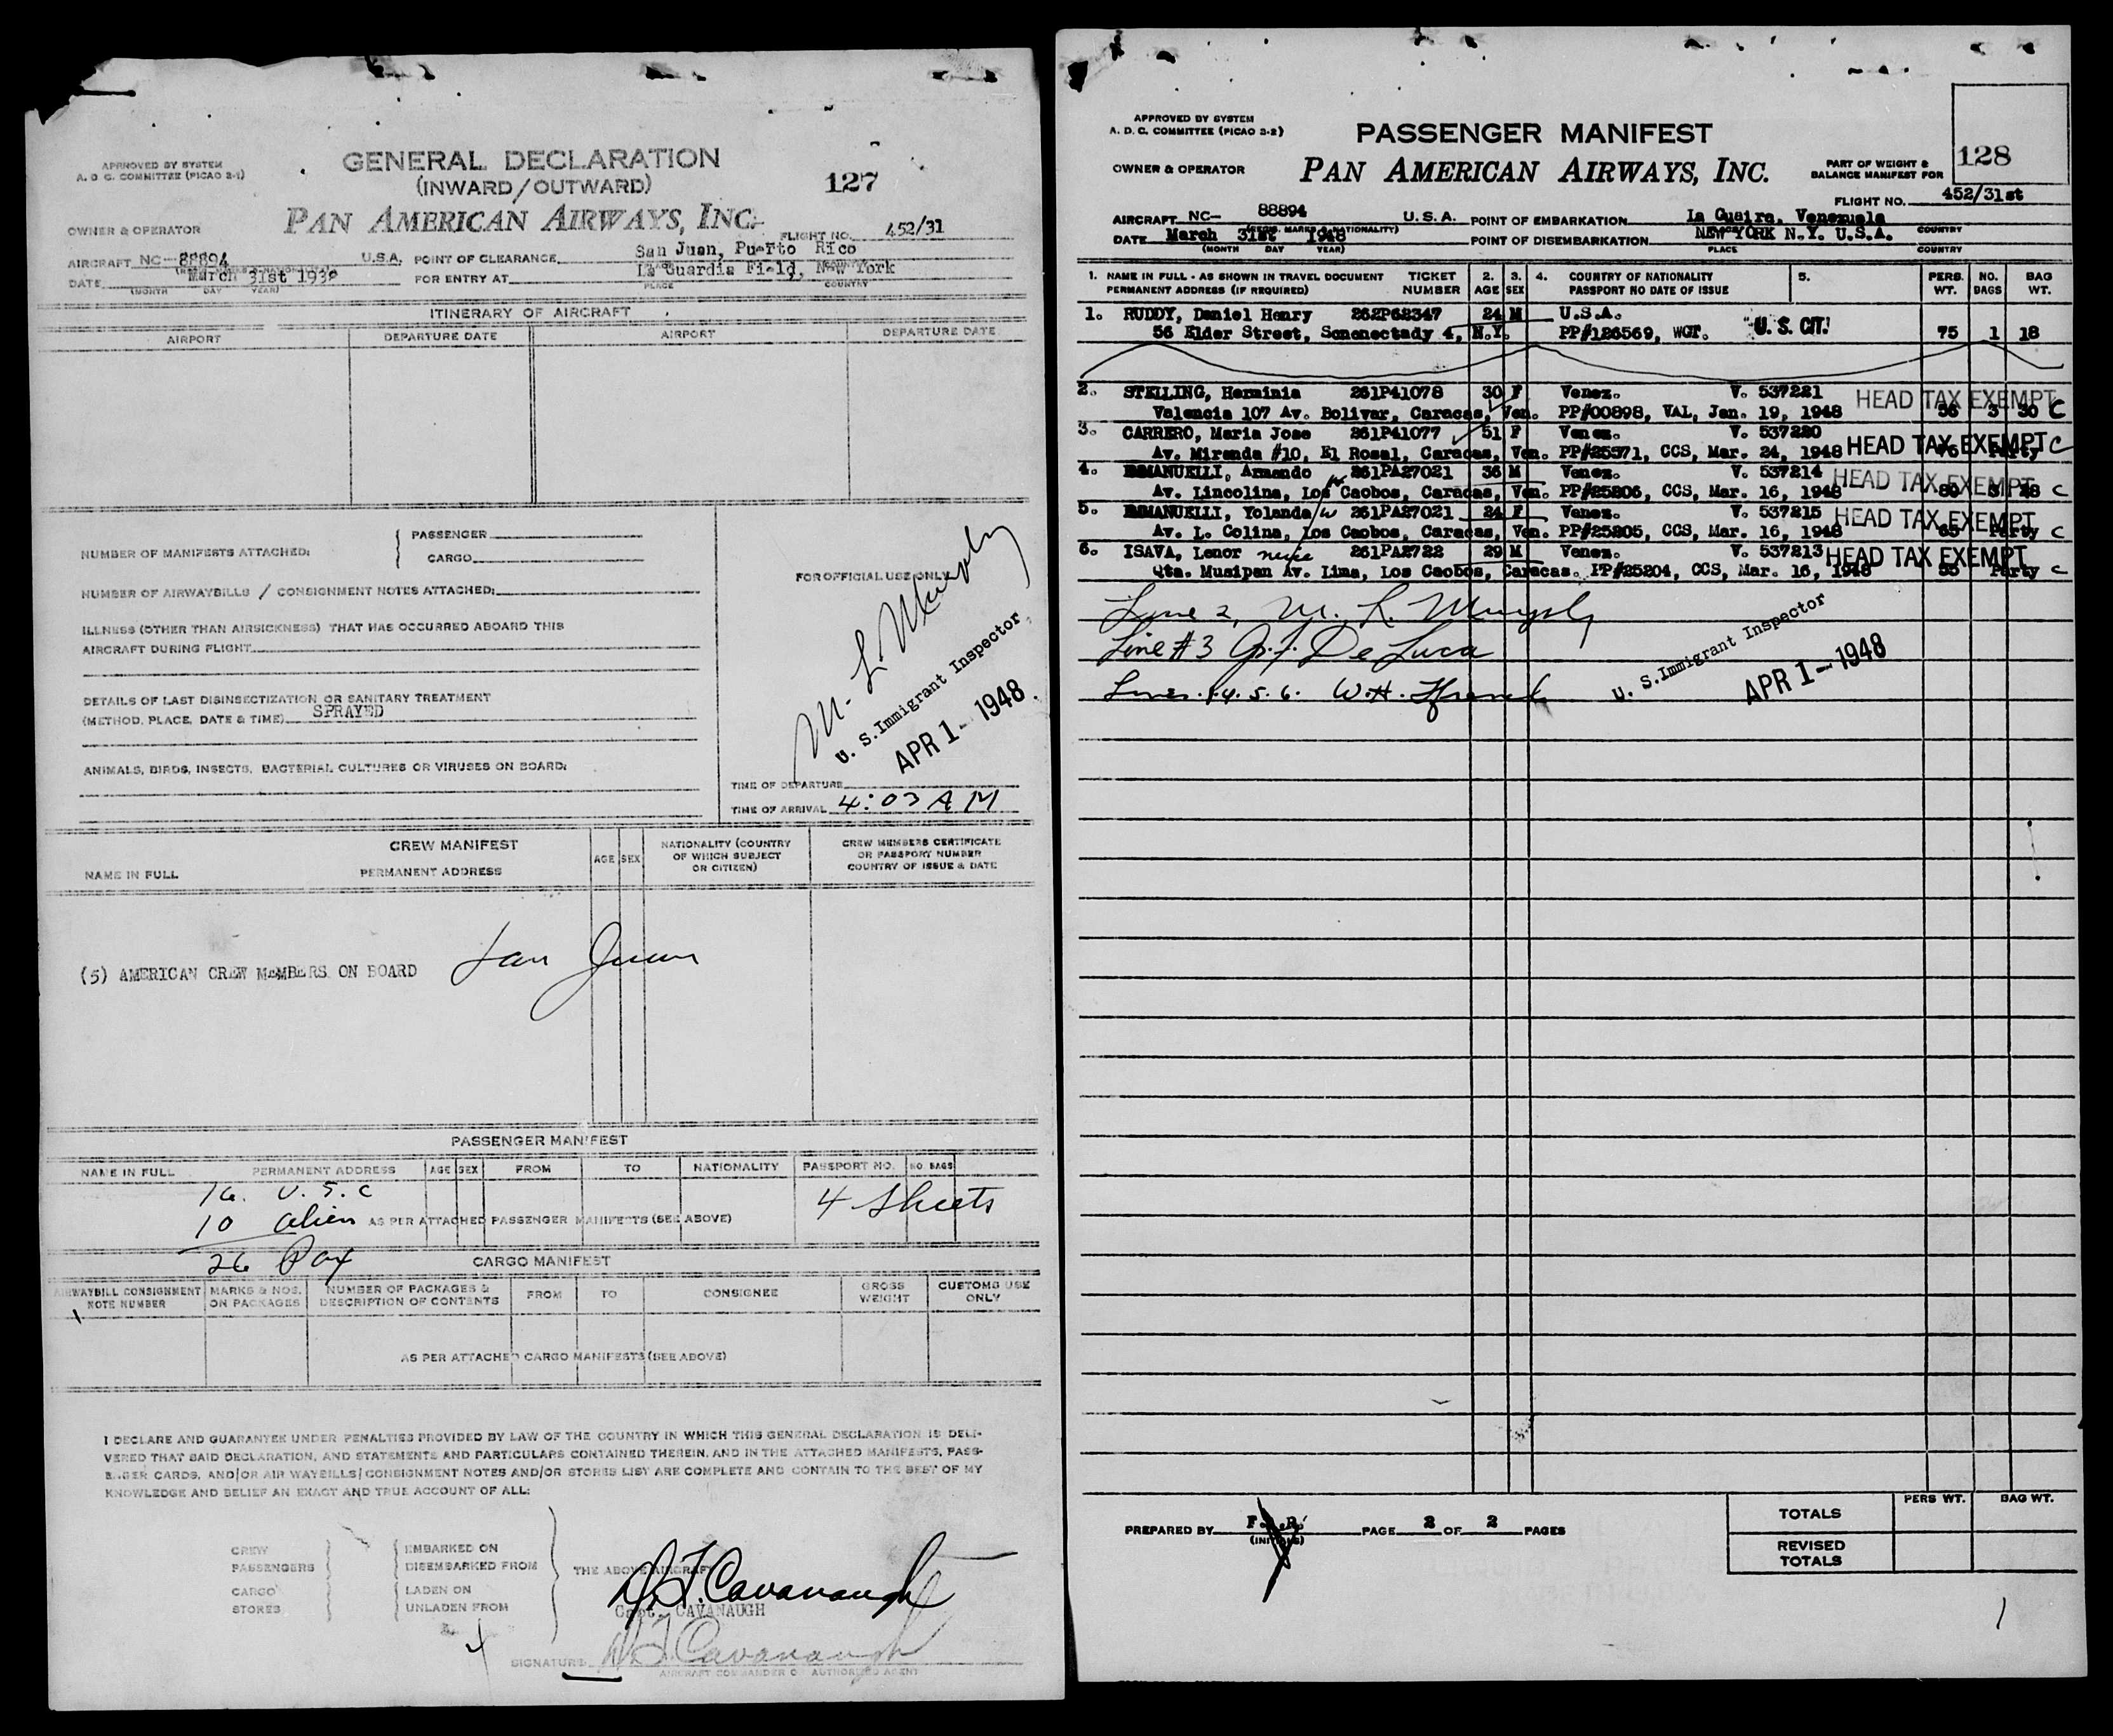 APPROVED BY SYSTEM
A. D. C. COMMITTEE (PICAO 2-1)
GENERAL DECLARATION
(INWARD/OUTWARD)
127
OWNER & OPERATOR
PAN AMERICAN AIRWAYS, INC.
FLIGHT NO. 452/31
AIRCRAFT NC- 88894 U.S.A. POINT OF CLEARANCE San Juan, Puerto Rico
DATE March 31st FOR ENTRY AT La Guardia Field, New York
(MONTH DAY YEAR) PLACE COUNTRY
ITINERARY OF AIRCRAFT
AIRPORT DEPARTURE DATE AIRPORT DEPARTURE DATE
NUMBER OF MANIFESTS ATTACHED: PASSENGER
CARGO
NUMBER OF AIRWAYBILLS / CONSIGNMENT NOTES ATTACHED:
ILLNESS (OTHER THAN AIRSICKNESS) THAT HAS OCCURRED ABOARD THIS
AIRCRAFT DURING FLIGHT
DETAILS OF LAST DISINSECTIZATION OR SANITARY TREATMENT
(METHOD, PLACE, DATE & TIME) SPRAYED
ANIMALS, BIRDS, INSECTS, BACTERIAL CULTURES OR VIRUSES ON BOARD:
FOR OFFICIAL USE ONLY
M. L. Murphy
U. S. Immigrant Inspector
APR 1 - 1948
TIME OF DEPARTURE
TIME OF ARRIVAL 4:03 AM
CREW MANIFEST
NAME IN FULL PERMANENT ADDRESS AGE SEX NATIONALITY (COUNTRY OF WHICH SUBJECT OR CITIZEN) CREW MEMBERS CERTIFICATE OR PASSPORT NUMBER COUNTRY OF ISSUE & DATE
(5) AMERICAN CREW MEMBERS ON BOARD San Juan
PASSENGER MANIFEST
NAME IN FULL PERMANENT ADDRESS AGE SEX FROM TO NATIONALITY PASSPORT NO. NO. BAGS
16 U. S. C
10 Alien AS PER ATTACHED PASSENGER MANIFESTS (SEE ABOVE) 4 Sheets
26 Pax
CARGO MANIFEST
AIRWAYBILL CONSIGNMENT NOTE NUMBER MARKS & NOS. ON PACKAGES NUMBER OF PACKAGES & DESCRIPTION OF CONTENTS FROM TO CONSIGNEE GROSS WEIGHT CUSTOMS USE ONLY
AS PER ATTACHED CARGO MANIFESTS (SEE ABOVE)
I DECLARE AND GUARANTEE UNDER PENALTIES PROVIDED BY LAW OF THE COUNTRY IN WHICH THIS GENERAL DECLARATION IS DELI-
VERED THAT SAID DECLARATION, AND STATEMENTS AND PARTICULARS CONTAINED THEREIN, AND IN THE ATTACHED MANIFESTS, PASS-
ENGER CARDS, AND/OR AIR WAYBILLS/CONSIGNMENT NOTES AND/OR STORES LIST ARE COMPLETE AND CONTAIN TO THE BEST OF MY
KNOWLEDGE AND BELIEF AN EXACT AND TRUE ACCOUNT OF ALL:
CREW EMBARKED ON
PASSENGERS DISEMBARKED FROM THE ABOVE AIRCRAFT
CARGO LADEN ON
STORES UNLADEN FROM
Capt. CAVANAUGH
SIGNATURE
AIRCRAFT COMMANDER OR AUTHORIZED AGENT
APPROVED BY SYSTEM
A. D. C. COMMITTEE (PICAO 2-2)
PASSENGER MANIFEST
128
OWNER & OPERATOR
PAN AMERICAN AIRWAYS, INC.
PART OF WEIGHT & BALANCE MANIFEST FOR
FLIGHT NO. 452/31st
AIRCRAFT NC- 88894 U.S.A. POINT OF EMBARKATION La Guaira, Venezuela
DATE March 31st 1948 POINT OF DISEMBARKATION NEW YORK N.Y. U.S.A.
(MONTH DAY YEAR) PLACE COUNTRY
1. NAME IN FULL - AS SHOWN IN TRAVEL DOCUMENT PERMANENT ADDRESS (IF REQUIRED) TICKET NUMBER 2. AGE 3. SEX 4. COUNTRY OF NATIONALITY PASSPORT NO DATE OF ISSUE 5. PERS. WT. NO. BAGS BAG WT.
1. RUDDY, Daniel Henry 262P62347 24 M U.S.A.
56 Elder Street, Scnenectady 4, N.Y. PP#126569, WGT. U. S. CIT. 75 1 18
2. STELLING, Herminia 261P41078 30 F Venez. V. 537221 HEAD TAX EXEMPT
Valencia 107 Av. Bolivar, Caracas, Ven. PP#00898, VAL, Jan. 19, 1948 56 3 30 C
3. CARRERO, Maria Jose 261P41077 51 F Venez. V. 537220 HEAD TAX EXEMPT
Av. Miranda #10, El Rosal, Caracas, Ven. PP#25371, CCS, Mar. 24, 1948 Party C
4. EMMANUELLI, Armando 261PA27021 36 M Venez. V. 537214 HEAD TAX EXEMPT
Av. Lincolina, Los Caobos, Caracas, Ven. PP#25806, CCS, Mar. 16, 1948 C
5. EMMANUELLI, Yolanda w 261PA27021 24 F Venez. V. 537215 HEAD TAX EXEMPT
Av. L. Colina, Los Caobos, Caracas, Ven. PP#25805, CCS, Mar. 16, 1948 65 Party C
6. ISAVA, Lenor neice 261PA2722 29 M Venez. V. 537213 HEAD TAX EXEMPT
Qta. Musipan Av. Lima, Los Caobos, Caracas. PP#25204, CCS, Mar. 16, 1948 55 Party C
Line 2, M. L. Murphy
Line #3 G. J. De Luca
Lines 4. 5. 6. W. H.
U. S. Immigrant Inspector
APR 1 - 1948
PREPARED BY
(INITIALS)
PAGE 2 OF 2 PAGES
PERS WT. BAG WT.
TOTALS
REVISED TOTALS